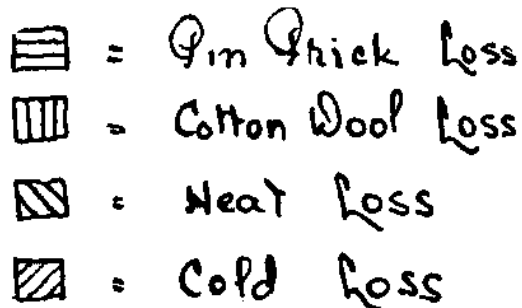 = Pin Prick Loss
= Cotton Wool Loss
= Heat Loss
= Cold Loss